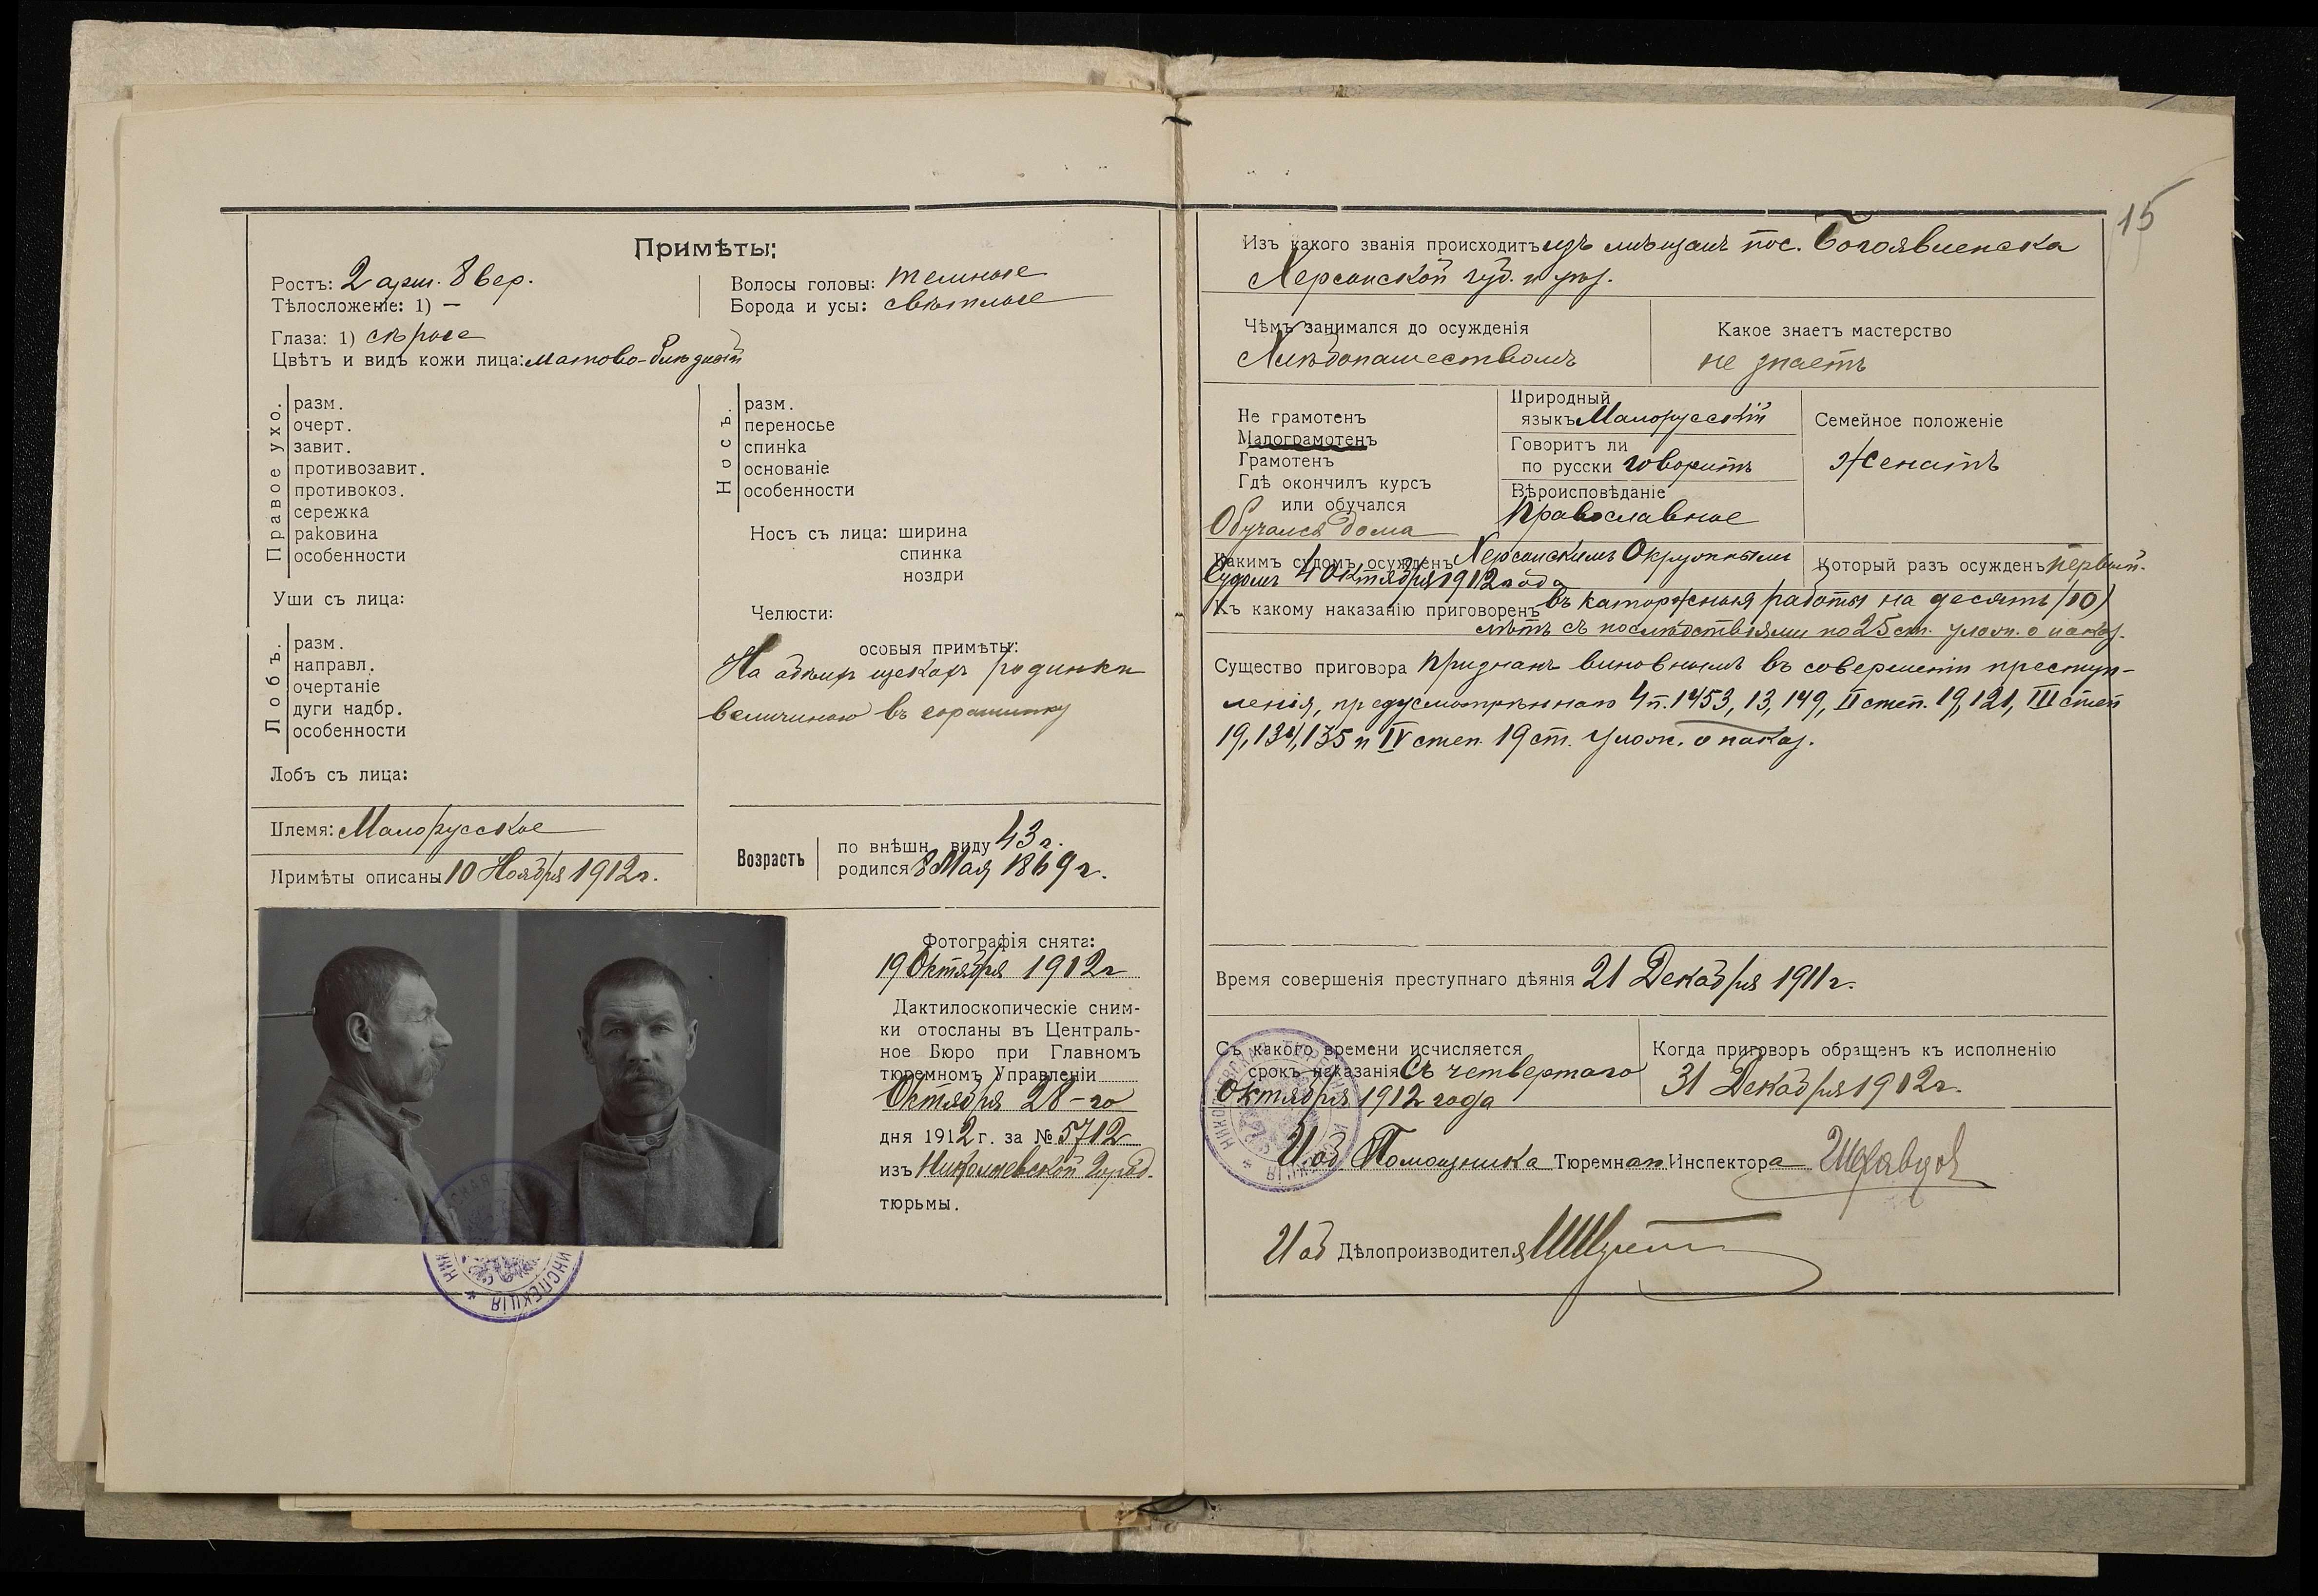 15
Примѣты:
Ростъ: 2 арш. 8 вер.
Тѣлосложеніе: 1) —
Глаза: 1) сѣрые
Цвѣтъ и видъ кожи лица: матово-блѣдный
Волосы головы: темные
Борода и усы: свѣтлые
Правое ухо.
разм.
очерт.
завит.
противозавит.
противокоз.
сережка
раковина
особенности
Уши съ лица:
Лобъ.
разм.
направл.
очертаніе
дуги надбр.
особенности
Лобъ съ лица:
Носъ.
разм.
переносье
спинка
основаніе
особенности
Носъ съ лица: ширина
спинка
ноздри
Челюсти:
особыя примѣты:
На обѣихъ щекахъ родинки
величиною въ горошинку
Племя: Малорусское
Примѣты описаны 10 Ноября 1912 г.
Возрастъ
по внѣшн. виду 43 г.
родился 8 Мая 1869 г.
Фотографія снята:
19 Октября 1912 г
Дактилоскопическіе сним-
ки отосланы въ Централь-
ное Бюро при Главномъ
тюремномъ Управленіи
Октября 28-го
дня 1912 г. за № 5712
изъ Николаевской
тюрьмы.
ИНСПЕКЦІЯ
Изъ какого званія происходитъ изъ мѣщанъ пос. Богоявленска
Херсонской губ. и уѣз.
Чѣмъ занимался до осужденія
Хлѣбопашествомъ
Какое знаетъ мастерство
не знаетъ
Не грамотенъ
Малограмотенъ
Грамотенъ
Гдѣ окончилъ курсъ
или обучался
Обучался дома
Природный
языкъ Малорусскій
Говоритъ ли
по русски говоритъ
Вѣроисповѣданіе
Православное
Семейное положеніе
Женатъ
Какимъ судомъ осужденъ Херсонскимъ Окружнымъ
Судомъ 4 Октября 1912 года
Который разъ осужденъ первый.
Къ какому наказанію приговоренъ въ каторжныя работы на десять (10)
лѣтъ съ послѣдствіями по 25 ст. улож. о наказ.
Существо приговора Признанъ виновнымъ въ совершеніи преступ-
ленія, предусмотрѣннаго 4 п. 1453, 13, 149, II степ. 19, 121, III степ
19, 134, 135 и IV степ. 19 ст. Улож. о наказ.
Время совершенія преступнаго дѣянія 21 Декабря 1911 г.
Съ какого времени исчисляется
срокъ наказанія Съ четвертаго
Октября 1912 года
Когда приговоръ обращенъ къ исполненію
31 Декабря 1912 г.
И об Помощника Тюремнаго Инспектора
И об Дѣлопроизводителя